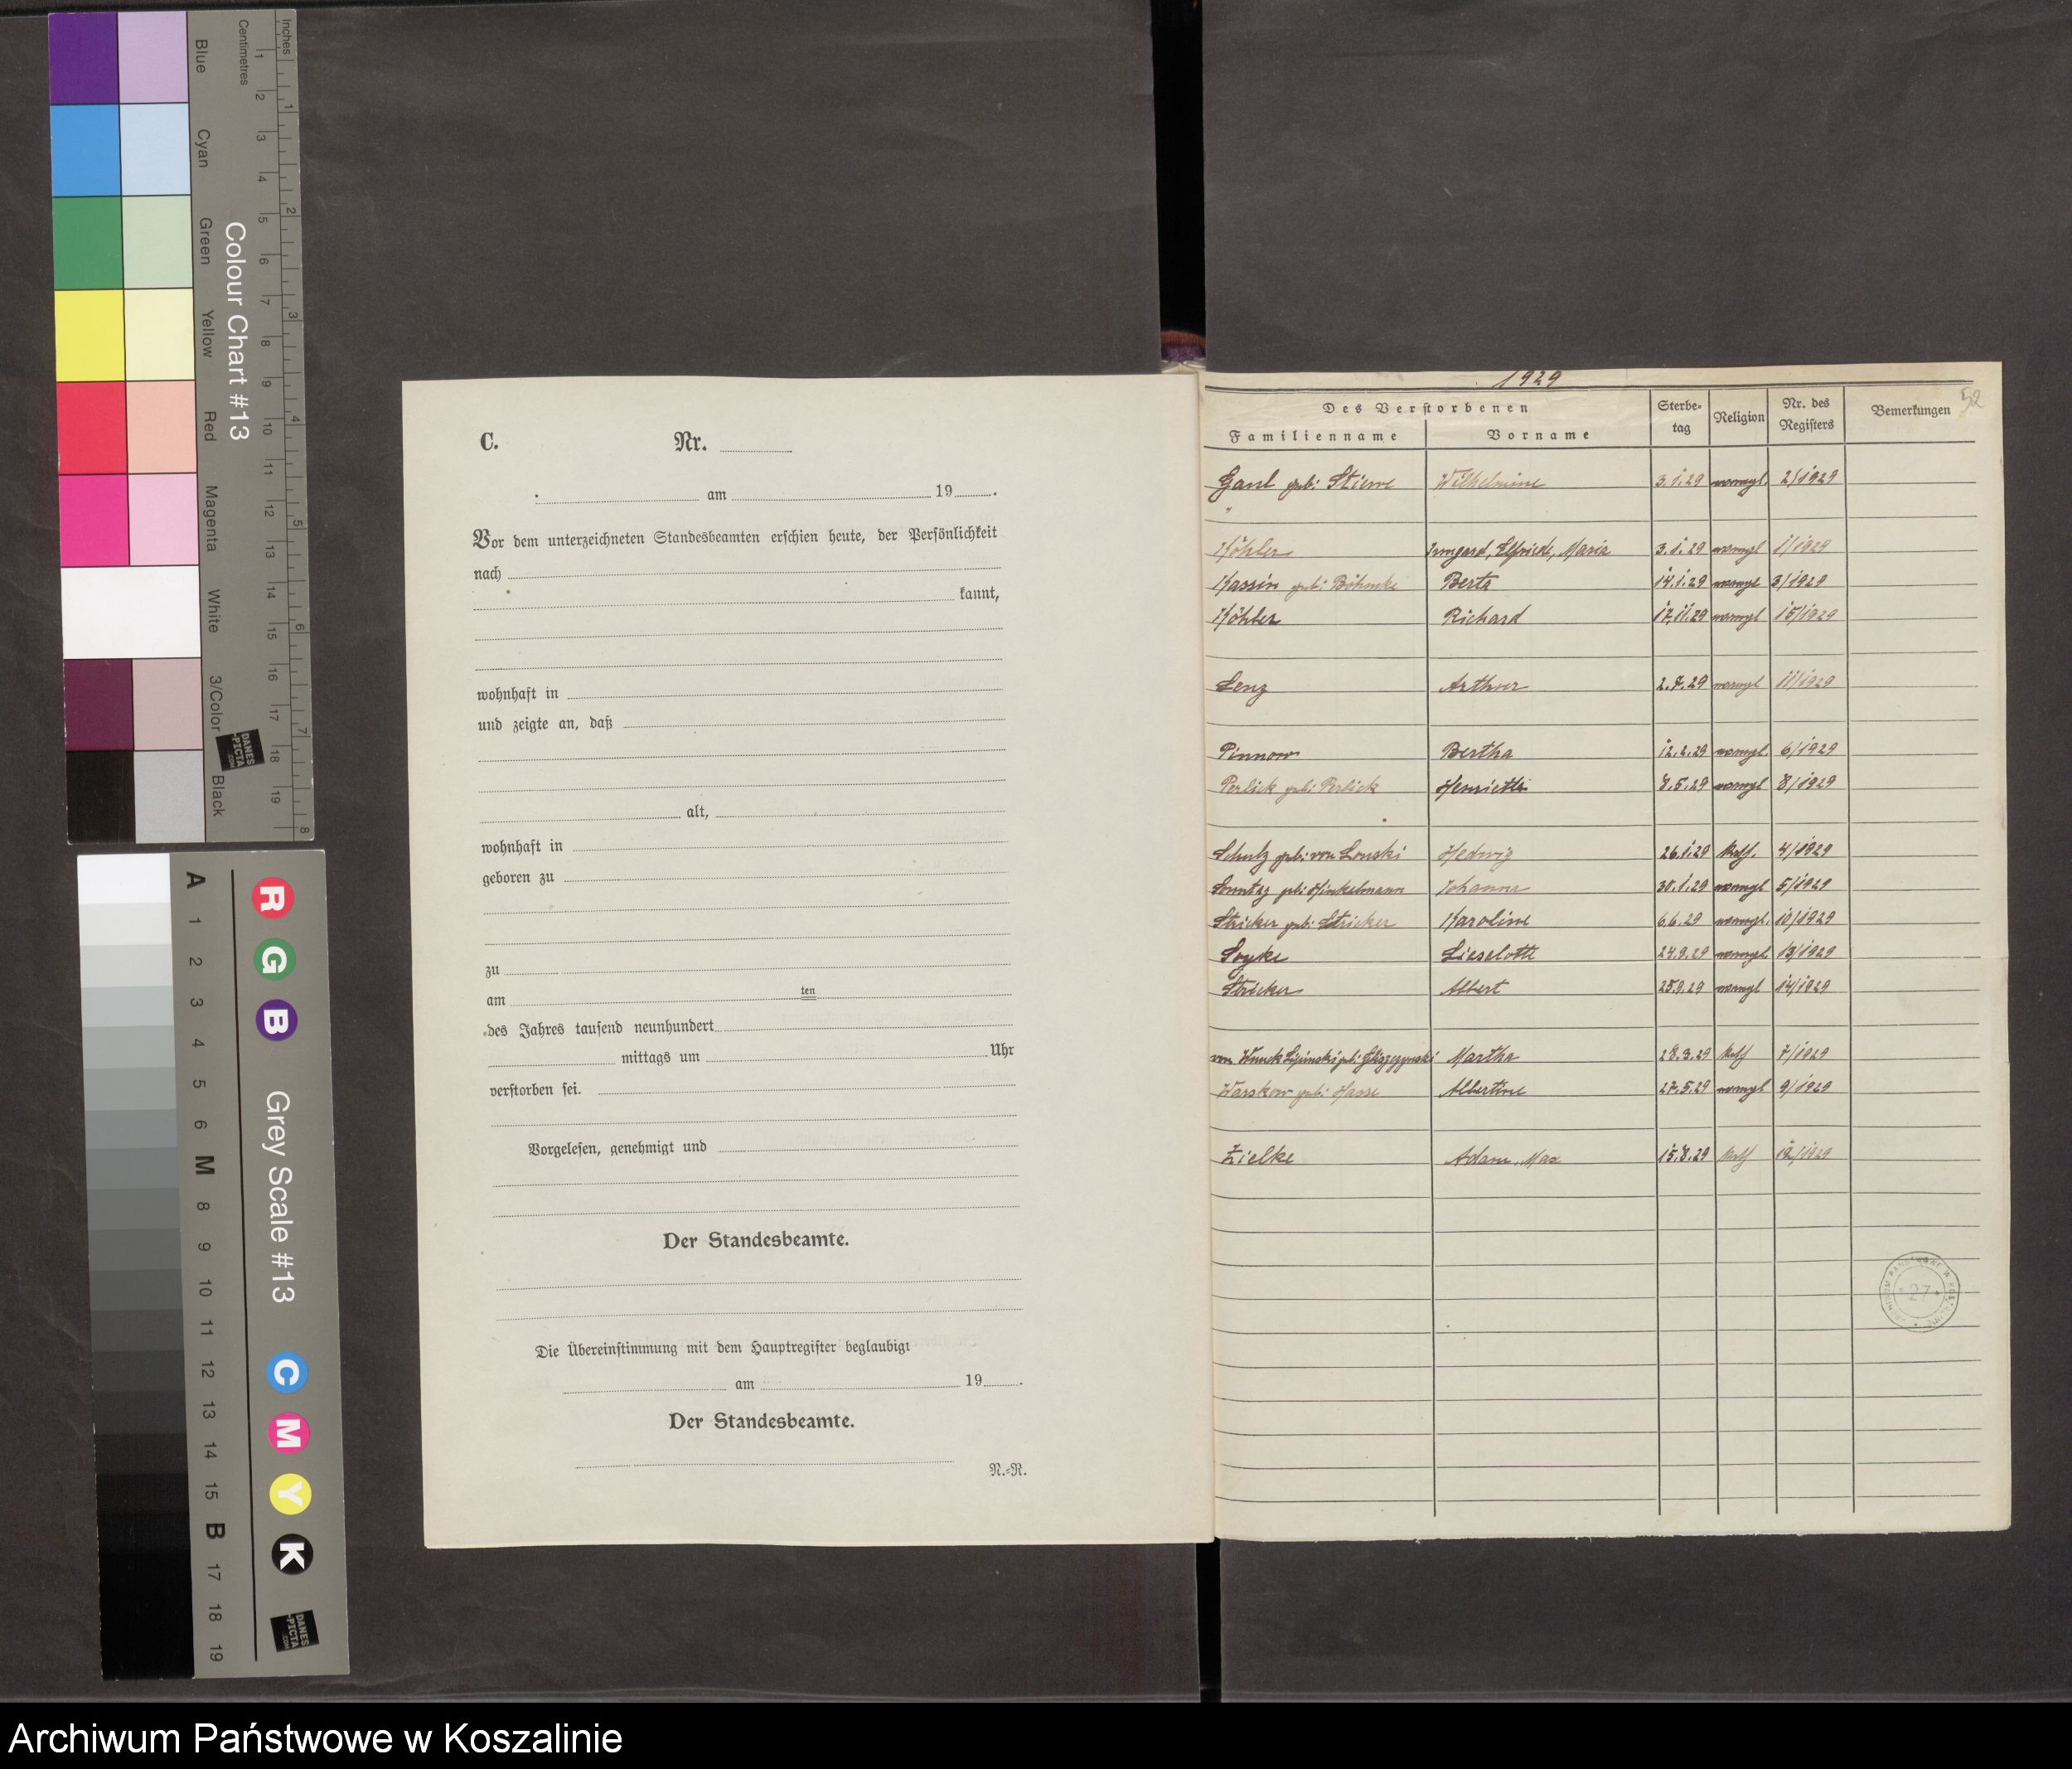 Blue
Cyan
Green
Yellow
Red
Magenta
White
3/Color
Black
Centimetres
Inches
1 2 3 4 5 6 7 8 9 10 11 12 13 14 15 16 17 18 19
1 2 3 4 5 6 7 8
Colour Chart #13
DANES
-PICTA
.COM
A 1 2 3 4 5 6 M 8 9 10 11 12 13 14 15 B 17 18 19
R G B
Grey Scale #13
C M Y K
DANES
-PICTA
.COM
C. Nr.
am 19 .
Vor dem unterzeichneten Standesbeamten erschien heute, der Persönlichkeit
nach
kannt,
wohnhaft in
und zeigte an, daß
alt,
wohnhaft in
geboren zu
zu
am ten
des Jahres tausend neunhundert
mittags um Uhr
verstorben sei.
Vorgelesen, genehmigt und
Der Standesbeamte.
Die Übereinstimmung mit dem Hauptregister beglaubigt
am 19 .
Der Standesbeamte.
N.-R.
1929
52
Des Verstorbenen Sterbetag Religion Nr. des Registers Bemerkungen
Familienname Vorname
Gaul geb: Stiewe Wilhelmine 3.1.29 evangl. 2/1929
Köhler Irmgard, Elfriede, Maria 3.1.29 evangl 1/1929
Kassin geb: Böhnke Berta 14.1.29 evangl 3/1929
Köhler Richard 17.11.29 evangl 15/1929
Lenz Arthur 2.7.29 evangl 11/1929
Pinnow Bertha 12.2.29 evangl. 6/1929
Perlick geb: Perlick Henriette 8.5.29 evangl 8/1929
Schulz geb: von 26.1.29 Kath. 4/1929
Hedwig
Sonntag geb: Hinkelmann Johanna 30.1.29 evangl 5/1929
Stricker geb: Stricker Karoline 6.6.29 evangl. 10/1929
Soyke Lieselotte 24.9.29 evangl. 13/1929
Stricker Albert 25.9.29 evangl 14/1929
von geb: Martha 28.3.29 Kath 7/1929
Warskow geb: Hasse Albertine 27.5.29 evangl 9/1929
Zielke Adam, Max 15.8.29 Kath 12/1929
27
Archiwum Państwowe w Koszalinie